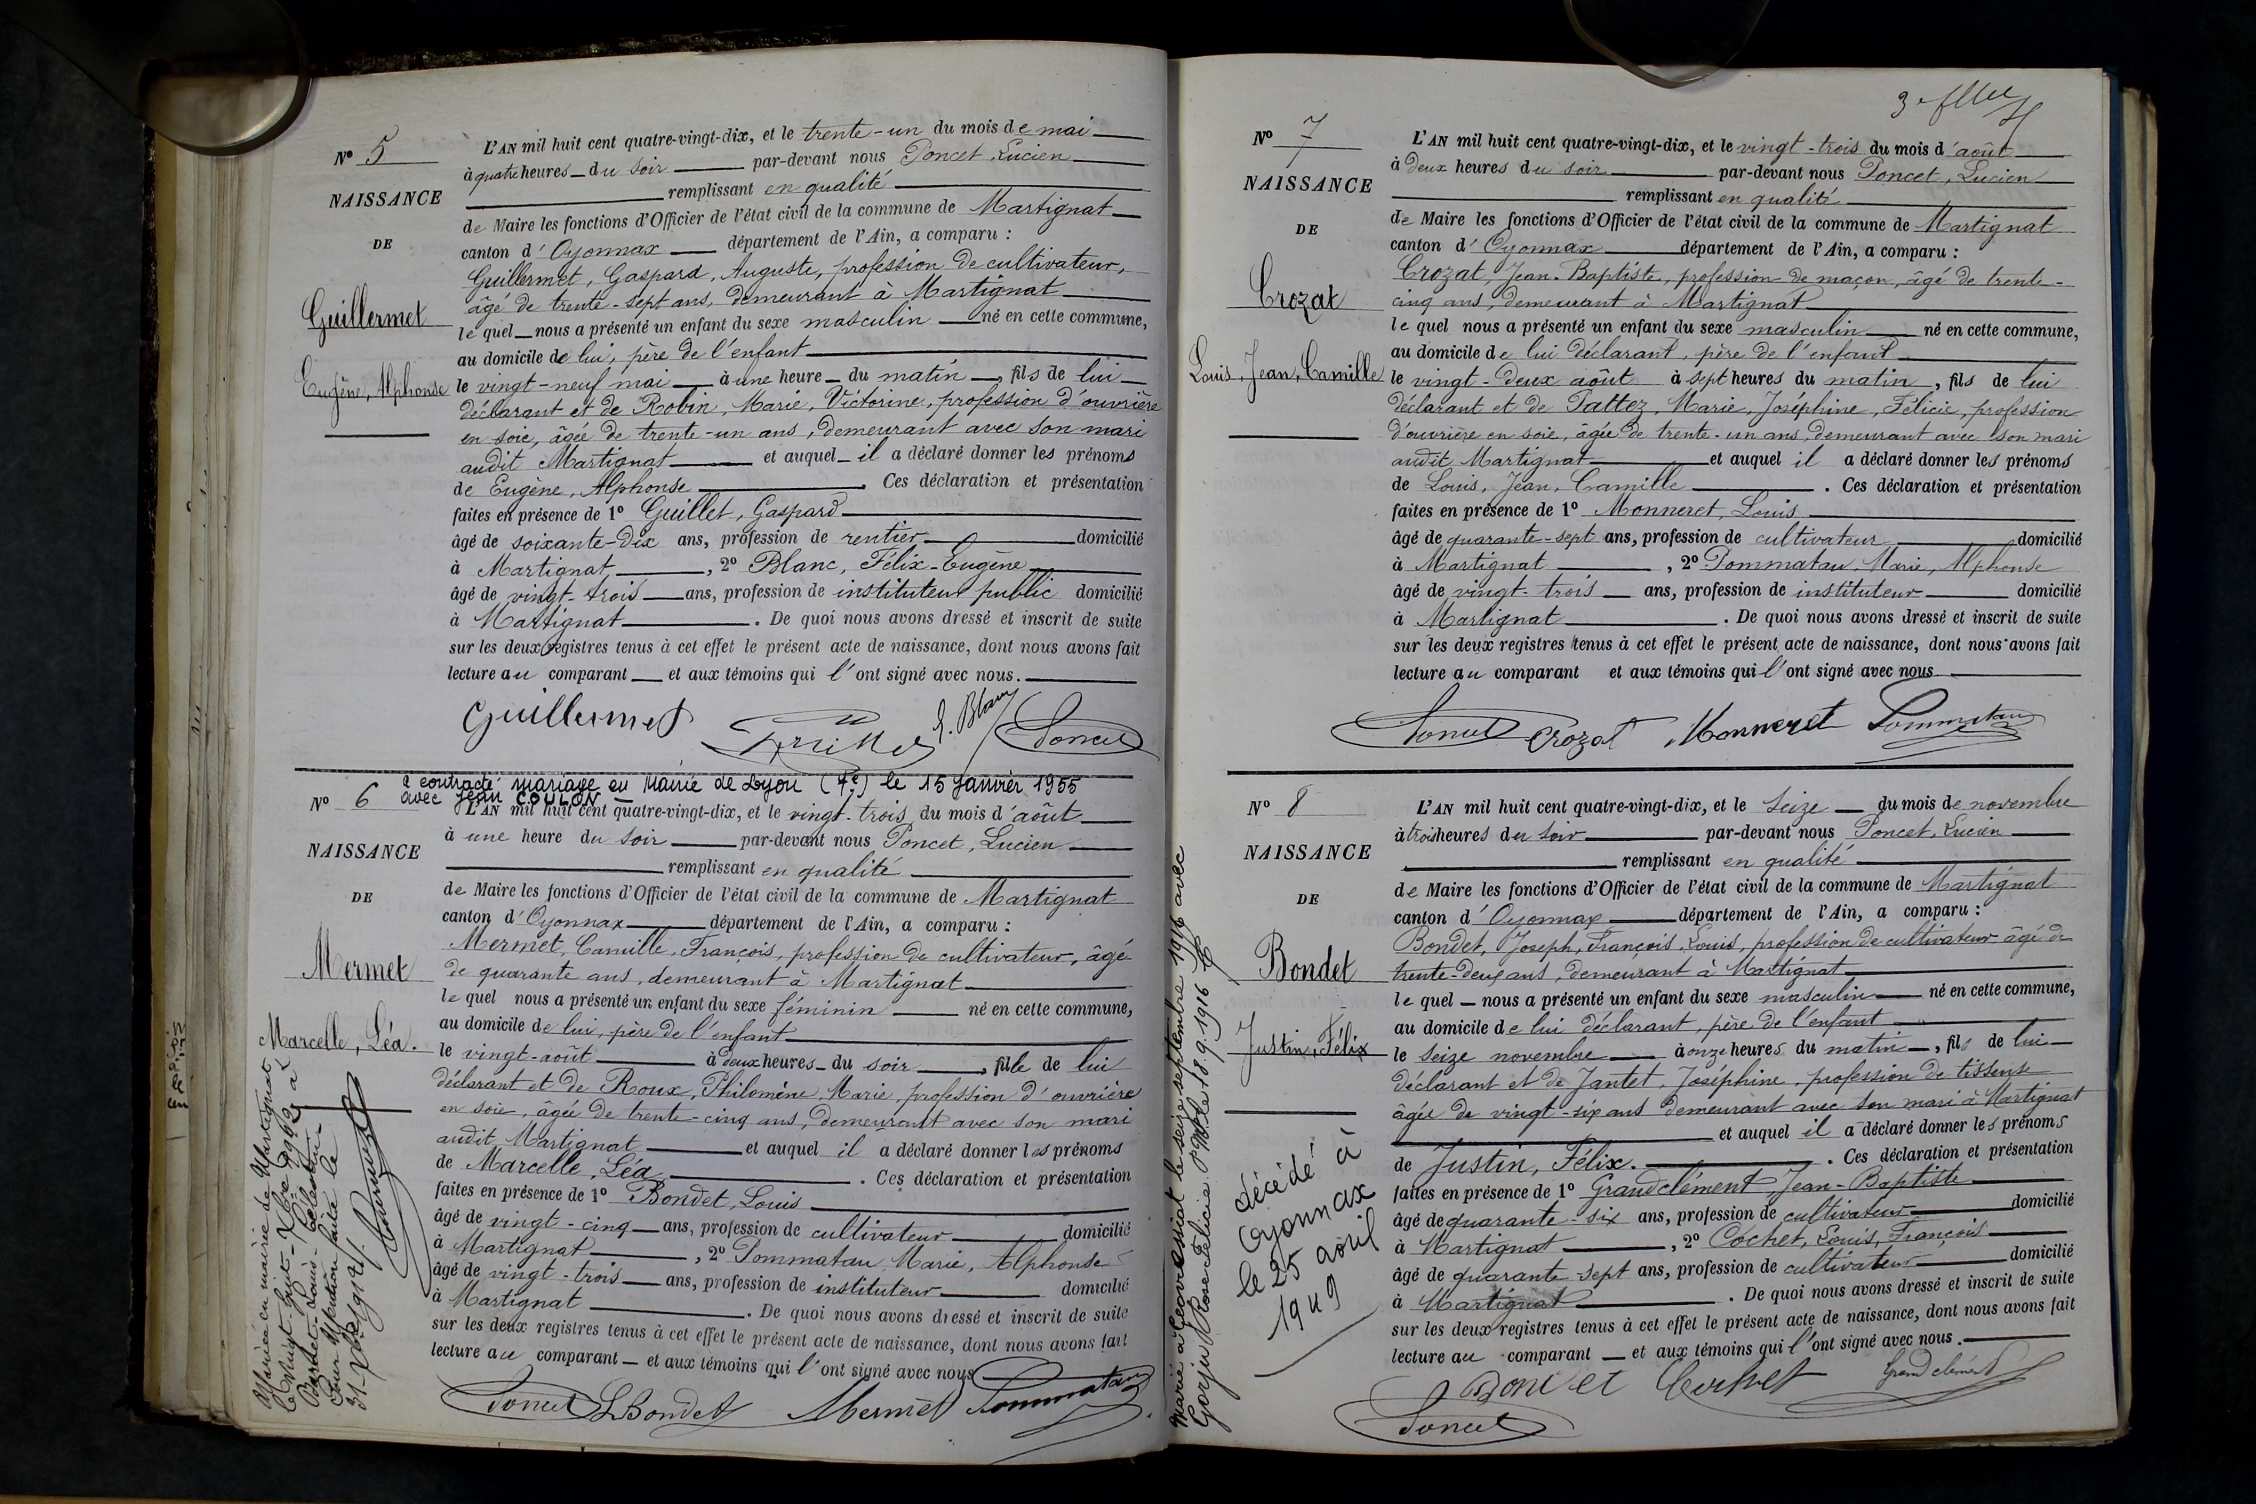 Nº 5
NAISSANCE
DE
Guillermet
Eugène, Alphonse
L'AN mil huit cent quatre-vingt-dix, et le trente-un du mois de mai
à quatre heures du soir par-devant nous Poncet, Lucien
remplissant en qualité
de Maire les fonctions d'Officier de l'état civil de la commune de Martignat
canton d'Oyonnax département de l'Ain, a comparu :
Guillermet, Gaspard, Auguste, profession de cultivateur,
âgé de trente-sept ans, demeurant à Martignat
le quel nous a présenté un enfant du sexe masculin né en cette commune,
au domicile de lui, père de l'enfant
le vingt-neuf mai à une heure du matin, fils de lui
déclarant et de Robin, Marie, Victorine, profession d'ouvrière
en soie, âgée de trente-un ans, demeurant avec son mari
audit Martignat et auquel il a déclaré donner les prénoms
de Eugène, Alphonse. Ces déclaration et présentation
faites en présence de 1º Guillet, Gaspard
âgé de soixante-dix ans, profession de rentier domicilié
à Martignat, 2º Blanc, Félix-Eugène
âgé de vingt-trois ans, profession de instituteur public domicilié
à Martignat. De quoi nous avons dressé et inscrit de suite
sur les deux registres tenus à cet effet le présent acte de naissance, dont nous avons fait
lecture au comparant et aux témoins qui l'ont signé avec nous.
Guillermet Guillet E. Blanc Poncet
a contracté mariage en Mairie de Lyon (4e) le 15 Janvier 1955
avec Jean COULON
Nº 6
NAISSANCE
DE
Mermet
Marcelle, Léa.
L'AN mil huit cent quatre-vingt-dix, et le vingt-trois du mois d'août
à une heure du soir par-devant nous Poncet, Lucien
remplissant en qualité
de Maire les fonctions d'Officier de l'état civil de la commune de Martignat
canton d'Oyonnax département de l'Ain, a comparu :
Mermet, Camille, François, profession de cultivateur, âgé
de quarante ans, demeurant à Martignat
le quel nous a présenté un enfant du sexe féminin né en cette commune,
au domicile de lui, père de l'enfant
le vingt-août à deux heures du soir, fille de lui
déclarant et de Roux, Philomène, Marie, profession d'ouvrière
en soie, âgée de trente-cinq ans, demeurant avec son mari
audit Martignat et auquel il a déclaré donner les prénoms
de Marcelle, Léa. Ces déclaration et présentation
faites en présence de 1º Bondet, Louis
âgé de vingt-cinq ans, profession de cultivateur domicilié
à Martignat, 2º Pommatau, Marie, Alphonse
âgé de vingt-trois ans, profession de instituteur domicilié
à Martignat. De quoi nous avons dressé et inscrit de suite
sur les deux registres tenus à cet effet le présent acte de naissance, dont nous avons fait
lecture au comparant et aux témoins qui l'ont signé avec nous
Poncet L Bondet Mermet Pommatau
Mariée en mairie de Martignat
le vingt-huit
Barbet Louis
pour Mention faite le
Nº 7
NAISSANCE
DE
Crozat
Louis, Jean, Camille
L'AN mil huit cent quatre-vingt-dix, et le vingt-trois du mois d'août
à deux heures du soir par-devant nous Poncet, Lucien
remplissant en qualité
de Maire les fonctions d'Officier de l'état civil de la commune de Martignat
canton d'Oyonnax département de l'Ain, a comparu :
Crozat, Jean-Baptiste, profession de maçon, âgé de trente-
cinq ans, demeurant à Martignat
le quel nous a présenté un enfant du sexe masculin né en cette commune,
au domicile de lui déclarant, père de l'enfant
le vingt-deux août à sept heures du matin, fils de lui
déclarant et de Tattez, Marie, Joséphine, Félicie, profession
d'ouvrière en soie, âgée de trente-un ans, demeurant avec son mari
audit Martignat et auquel il a déclaré donner les prénoms
de Louis, Jean, Camille. Ces déclaration et présentation
faites en présence de 1º Monneret, Louis
âgé de quarante-sept ans, profession de cultivateur domicilié
à Martignat, 2º Pommatau, Marie, Alphonse
âgé de vingt-trois ans, profession de instituteur domicilié
à Martignat. De quoi nous avons dressé et inscrit de suite
sur les deux registres tenus à cet effet le présent acte de naissance, dont nous avons fait
lecture au comparant et aux témoins qui l'ont signé avec nous
Poncet Crozat Monneret Pommatau
Nº 8
NAISSANCE
DE
Bondet
Justin, Félix
L'AN mil huit cent quatre-vingt-dix, et le seize du mois de novembre
à trois heures du soir par-devant nous Poncet, Lucien
remplissant en qualité
de Maire les fonctions d'Officier de l'état civil de la commune de Martignat
canton d'Oyonnax département de l'Ain, a comparu :
Bondet, Joseph, François, Louis, profession de cultivateur âgé de
trente-deux ans, demeurant à Martignat
le quel nous a présenté un enfant du sexe masculin né en cette commune,
au domicile de lui déclarant, père de l'enfant
le seize novembre à onze heures du matin, fils de lui
déclarant et de Jantet, Joséphine, profession de tisseuse
âgée de vingt-six ans demeurant avec son mari à Martignat
et auquel il a déclaré donner les prénoms
de Justin, Félix. Ces déclaration et présentation
faites en présence de 1º Grandclément Jean-Baptiste
âgé de quarante-six ans, profession de cultivateur domicilié
à Martignat, 2º Cochet, Louis, François
âgé de quarante-sept ans, profession de cultivateur domicilié
à Martignat. De quoi nous avons dressé et inscrit de suite
sur les deux registres tenus à cet effet le présent acte de naissance, dont nous avons fait
lecture au comparant et aux témoins qui l'ont signé avec nous.
Bondet Cochet Grandclément
Poncet
Marié à Géovressiat le seize septembre 1916 avec
Gorju Rose Félicie. 18.9.1916
décédé à
Oyonnax
le 25 avril
1949